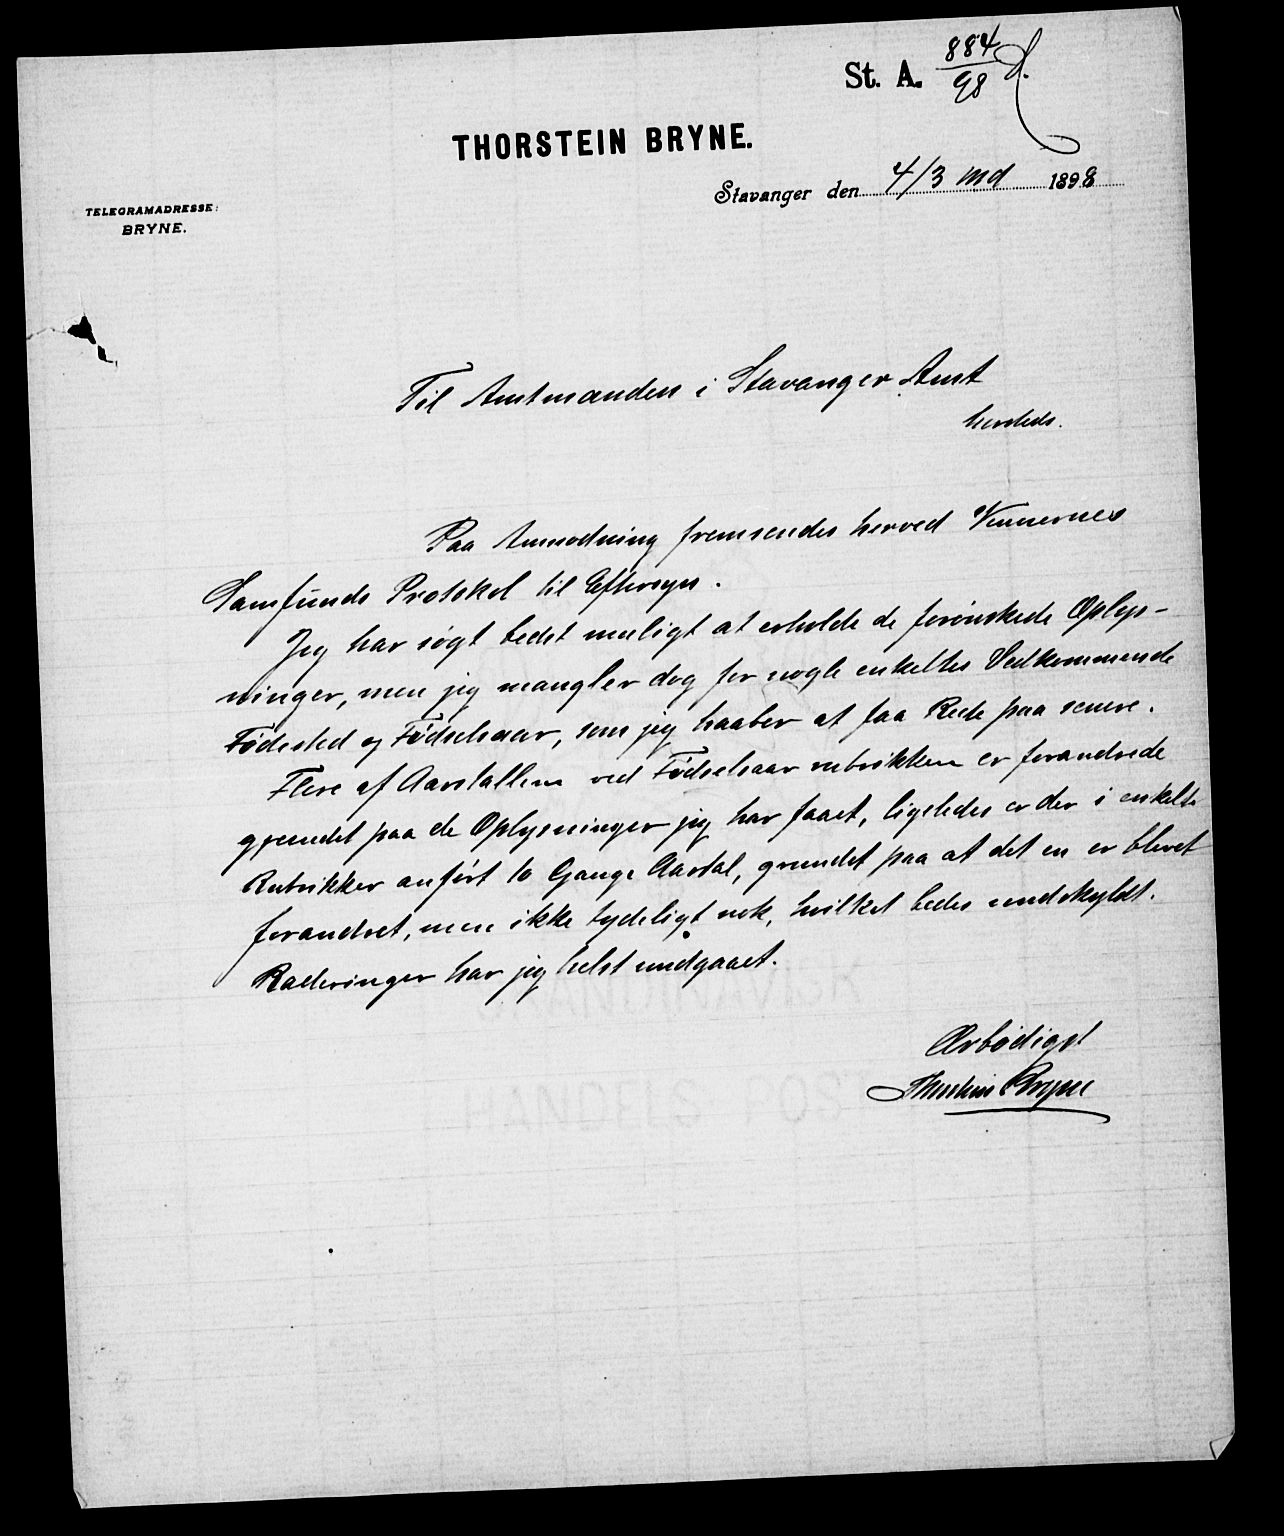 St. A. 884/98
THORSTEIN BRYNE.
Stavanger den 4/3 1898
TELEGRAMADRESSE:
BRYNE.
Til Amtmanden i Stavanger Amt
hersteds.
Paa Anmodning fremsendes herved Vennernes
Samfunds Protokol til Eftersyn.
Jeg har søgt bedst muligt at erholde de forønskede Oplys-
ninger, men jeg mangler dog for nogle enkeltes Vedkommende
Fødested og Fødselsaar, som jeg haaber at faa Rede paa senere.
Flere af Aarstallene ved Fødselsaar rubrikken er forandrede
grundet paa de Oplysninger jeg har faaet, ligeledes er der i enkelte
Rubrikker anført to Gange Aarstal, grundet paa at det en er blevet
forandret, men ikke tydeligt nok, hvilket bedes undskyldt.
Raderinger har jeg helst undgaaet.
Ærbødigst
Thorstein Bryne